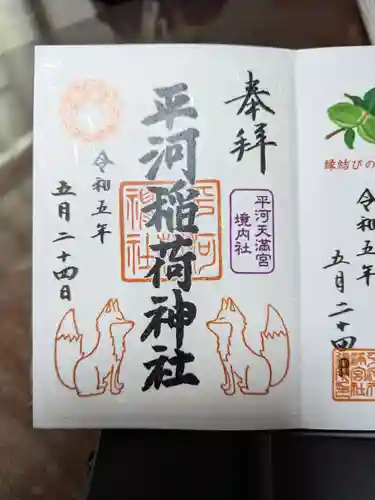 縁結びの
令和五年
五月二十四
奉拝
平河天満宮
境内社
平河稲荷神社
令和五年
五月二十四日